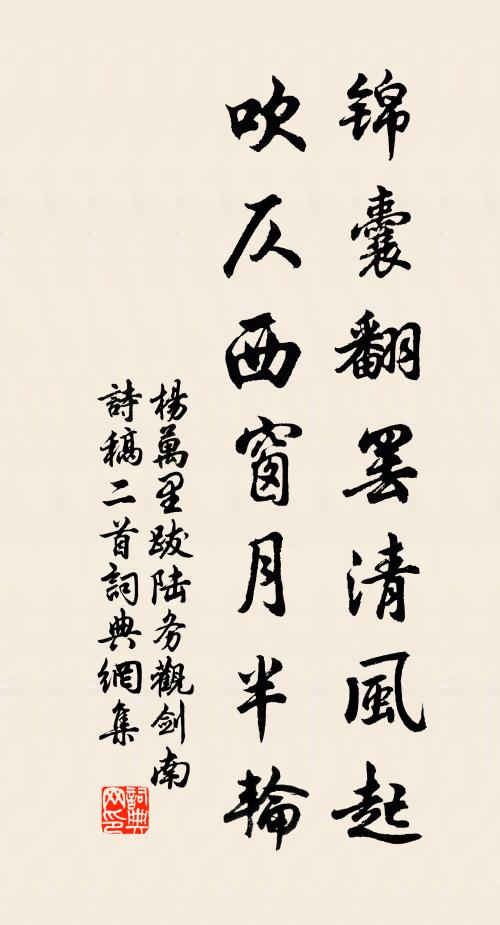 锦囊翻罢清風起
吹仄西窗月半輪
楊萬里跋陆务觀剑南
詩稿二首詞典網集
詞典网印